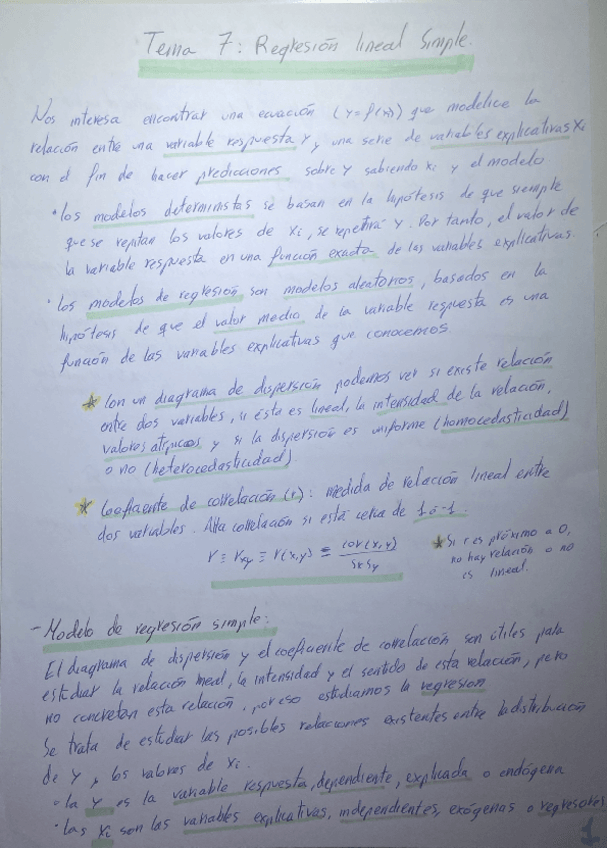 Tema 7: Regresión lineal Simple.
Nos interesa encontrar una ecuación (y=f(xi)) que modelice la
relación entre una variable respuesta Y, una serie de variables explicativas Xi
con el fin de hacer predicciones sobre Y sabiendo xi y el modelo
• Los modelos deterministas se basan en la hipótesis de que siempre
que se repitan los valores de Xi, se repetirá Y. Por tanto, el valor de
la variable respuesta en una función exacta de las variables explicativas.
• Los modelos de regresión son modelos aleatorios, basados en la
hipótesis de que el valor medio de la variable respuesta es una
función de las variables explicativas que conocemos.
* Con un diagrama de dispersión podemos ver si existe relación
entre dos variables, si ésta es lineal, la intensidad de la relación,
valores atípicos y si la dispersión es uniforme (homocedasticidad)
o no (heterocedasticidad).
* Coeficiente de correlación (r): medida de relación lineal entre
dos variables. Alta correlación si está cerca de 1 ó -1.
r ≡ rxy ≡ r(x,y) = cov(x,y) / sx sy
* Si r es próximo a 0,
no hay relación o no
es lineal.
- Modelo de regresión simple:
El diagrama de dispersión y el coeficiente de correlación son útiles para
estudiar la relación lineal, la intensidad y el sentido de esta relación, pero
no concretan esta relación, por eso estudiamos la regresión
Se trata de estudiar las posibles relaciones existentes entre la distribución
de Y y los valores de Xi.
• la Y es la variable respuesta, dependiente, explicada o endógena
• las Xi son las variables explicativas, independientes, exógenas o regresores
1